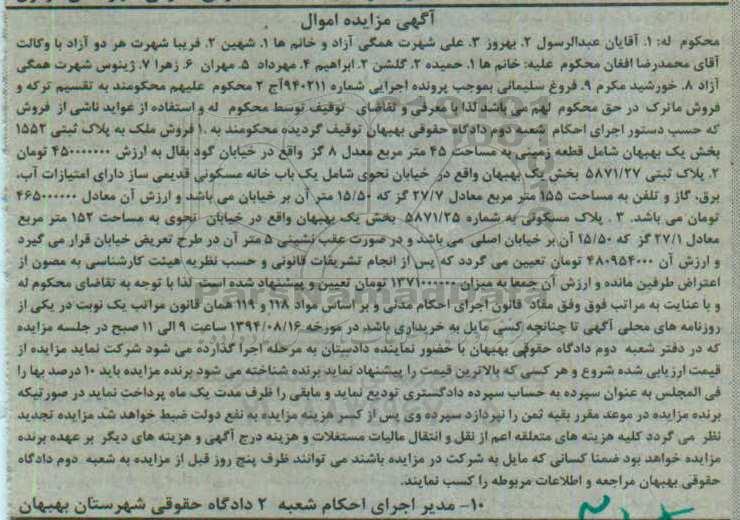 آگهی مزایده اموال
محکوم له: ۱. آقایان عبدالرسول ۲. بهروز ۳. علی شهرت همگی آزاد و خانم ها ۱. شهین ۲. فریبا شهرت هر دو آزاد با وکالت
آقای محمدرضا افغان محکوم علیه: خانم ها ۱. حمیده ۲. گلشن ۳. ابراهیم ۴. مهرداد ۵. مهران ۶. زهرا ۷. ژینوس شهرت همگی
آزاد ۸. خورشید مکرم ۹. فروغ سلیمانی بموجب پرونده اجرایی شماره ۹۴۰۲۱۱آج ۲ محکوم علیهم محکومند به تقسیم ترکه و
فروش ماترک در حق محکوم لهم می باشد لذا با معرفی و تقاضای توقیف توسط محکوم له و استفاده از عواید ناشی از فروش
که حسب دستور اجرای احکام شعبه دوم دادگاه حقوقی بهبهان توقیف گردیده محکومند به ۱. فروش ملک به پلاک ثبتی ۱۵۵۲
بخش یک بهبهان شامل قطعه زمینی به مساحت ۴۵ متر مربع معدل ۸ گز واقع در خیابان گود بقال به ارزش ۴۵۰۰۰۰۰۰۰ تومان
۲. پلاک ثبتی ۵۸۷۱/۲۷ بخش یک بهبهان واقع در خیابان نحوی شامل یک باب خانه مسکونی قدیمی ساز دارای امتیازات آب،
برق، گاز و تلفن به مساحت ۱۵۵ متر مربع معادل ۲۷/۷ گز که ۱۵/۵۰ متر آن بر خیابان می باشد و ارزش آن معادل ۴۶۵۰۰۰۰۰۰
تومان می باشد. ۳. پلاک مسکونی به شماره ۵۸۷۱/۲۵ بخش یک بهبهان واقع در خیابان نحوی به مساحت ۱۵۲ متر مربع
معادل ۲۷/۱ گز که ۱۵/۵۰ آن بر خیابان اصلی می باشد و در صورت عقب نشینی ۵ متر آن در طرح تعریض خیابان قرار می گیرد
و ارزش آن ۴۸۰۹۵۴۰۰۰ تومان تعیین می گردد که پس از انجام تشریفات قانونی و حسب نظریه هیئت کارشناسی به مصون از
اعتراض طرفین مانده و ارزش آن جمعا به میزان ۱۳۷۱۰۰۰۰۰۰ تومان تعیین و پیشنهاد شده است لذا با توجه به تقاضای محکوم له
و با عنایت به مراتب فوق وفق مفاد قانون اجرای احکام مدنی و بر اساس مواد ۱۱۸ و ۱۱۹ همان قانون مراتب یک نوبت در یکی از
روزنامه های محلی آگهی تا چنانچه کسی مایل به خریداری باشد در مورخه ۱۳۹۴/۰۸/۱۶ ساعت ۹ الی ۱۱ صبح در جلسه مزایده
که در دفتر شعبه دوم دادگاه حقوقی بهبهان با حضور نماینده دادستان به مرحله اجرا گذارده می شود شرکت نماید مزایده از
قیمت ارزیابی شده شروع و هر کسی که بالاترین قیمت را پیشنهاد نماید برنده شناخته می شود برنده مزایده باید ۱۰ درصد بها را
فی المجلس به عنوان سپرده به حساب سپرده دادگستری تودیع نماید و مابقی را ظرف مدت یک ماه پرداخت نماید در صورتیکه
برنده مزایده در موعد مقرر بقیه ثمن را نپردازد سپرده وی پس از کسر هزینه مزایده به نفع دولت ضبط خواهد شد مزایده تجدید
نظر می گردد کلیه هزینه های متعلقه اعم از نقل و انتقال مالیات مستغلات و هزینه درج آگهی و هزینه های دیگر بر عهده برنده
مزایده خواهد بود ضمنا کسانی که مایل به شرکت در مزایده باشند می توانند ظرف پنج روز قبل از مزایده به شعبه دوم دادگاه
حقوقی بهبهان مراجعه و اطلاعات مربوطه را کسب نمایند.
۱۰- مدیر اجرای احکام شعبه ۲ دادگاه حقوقی شهرستان بهبهان